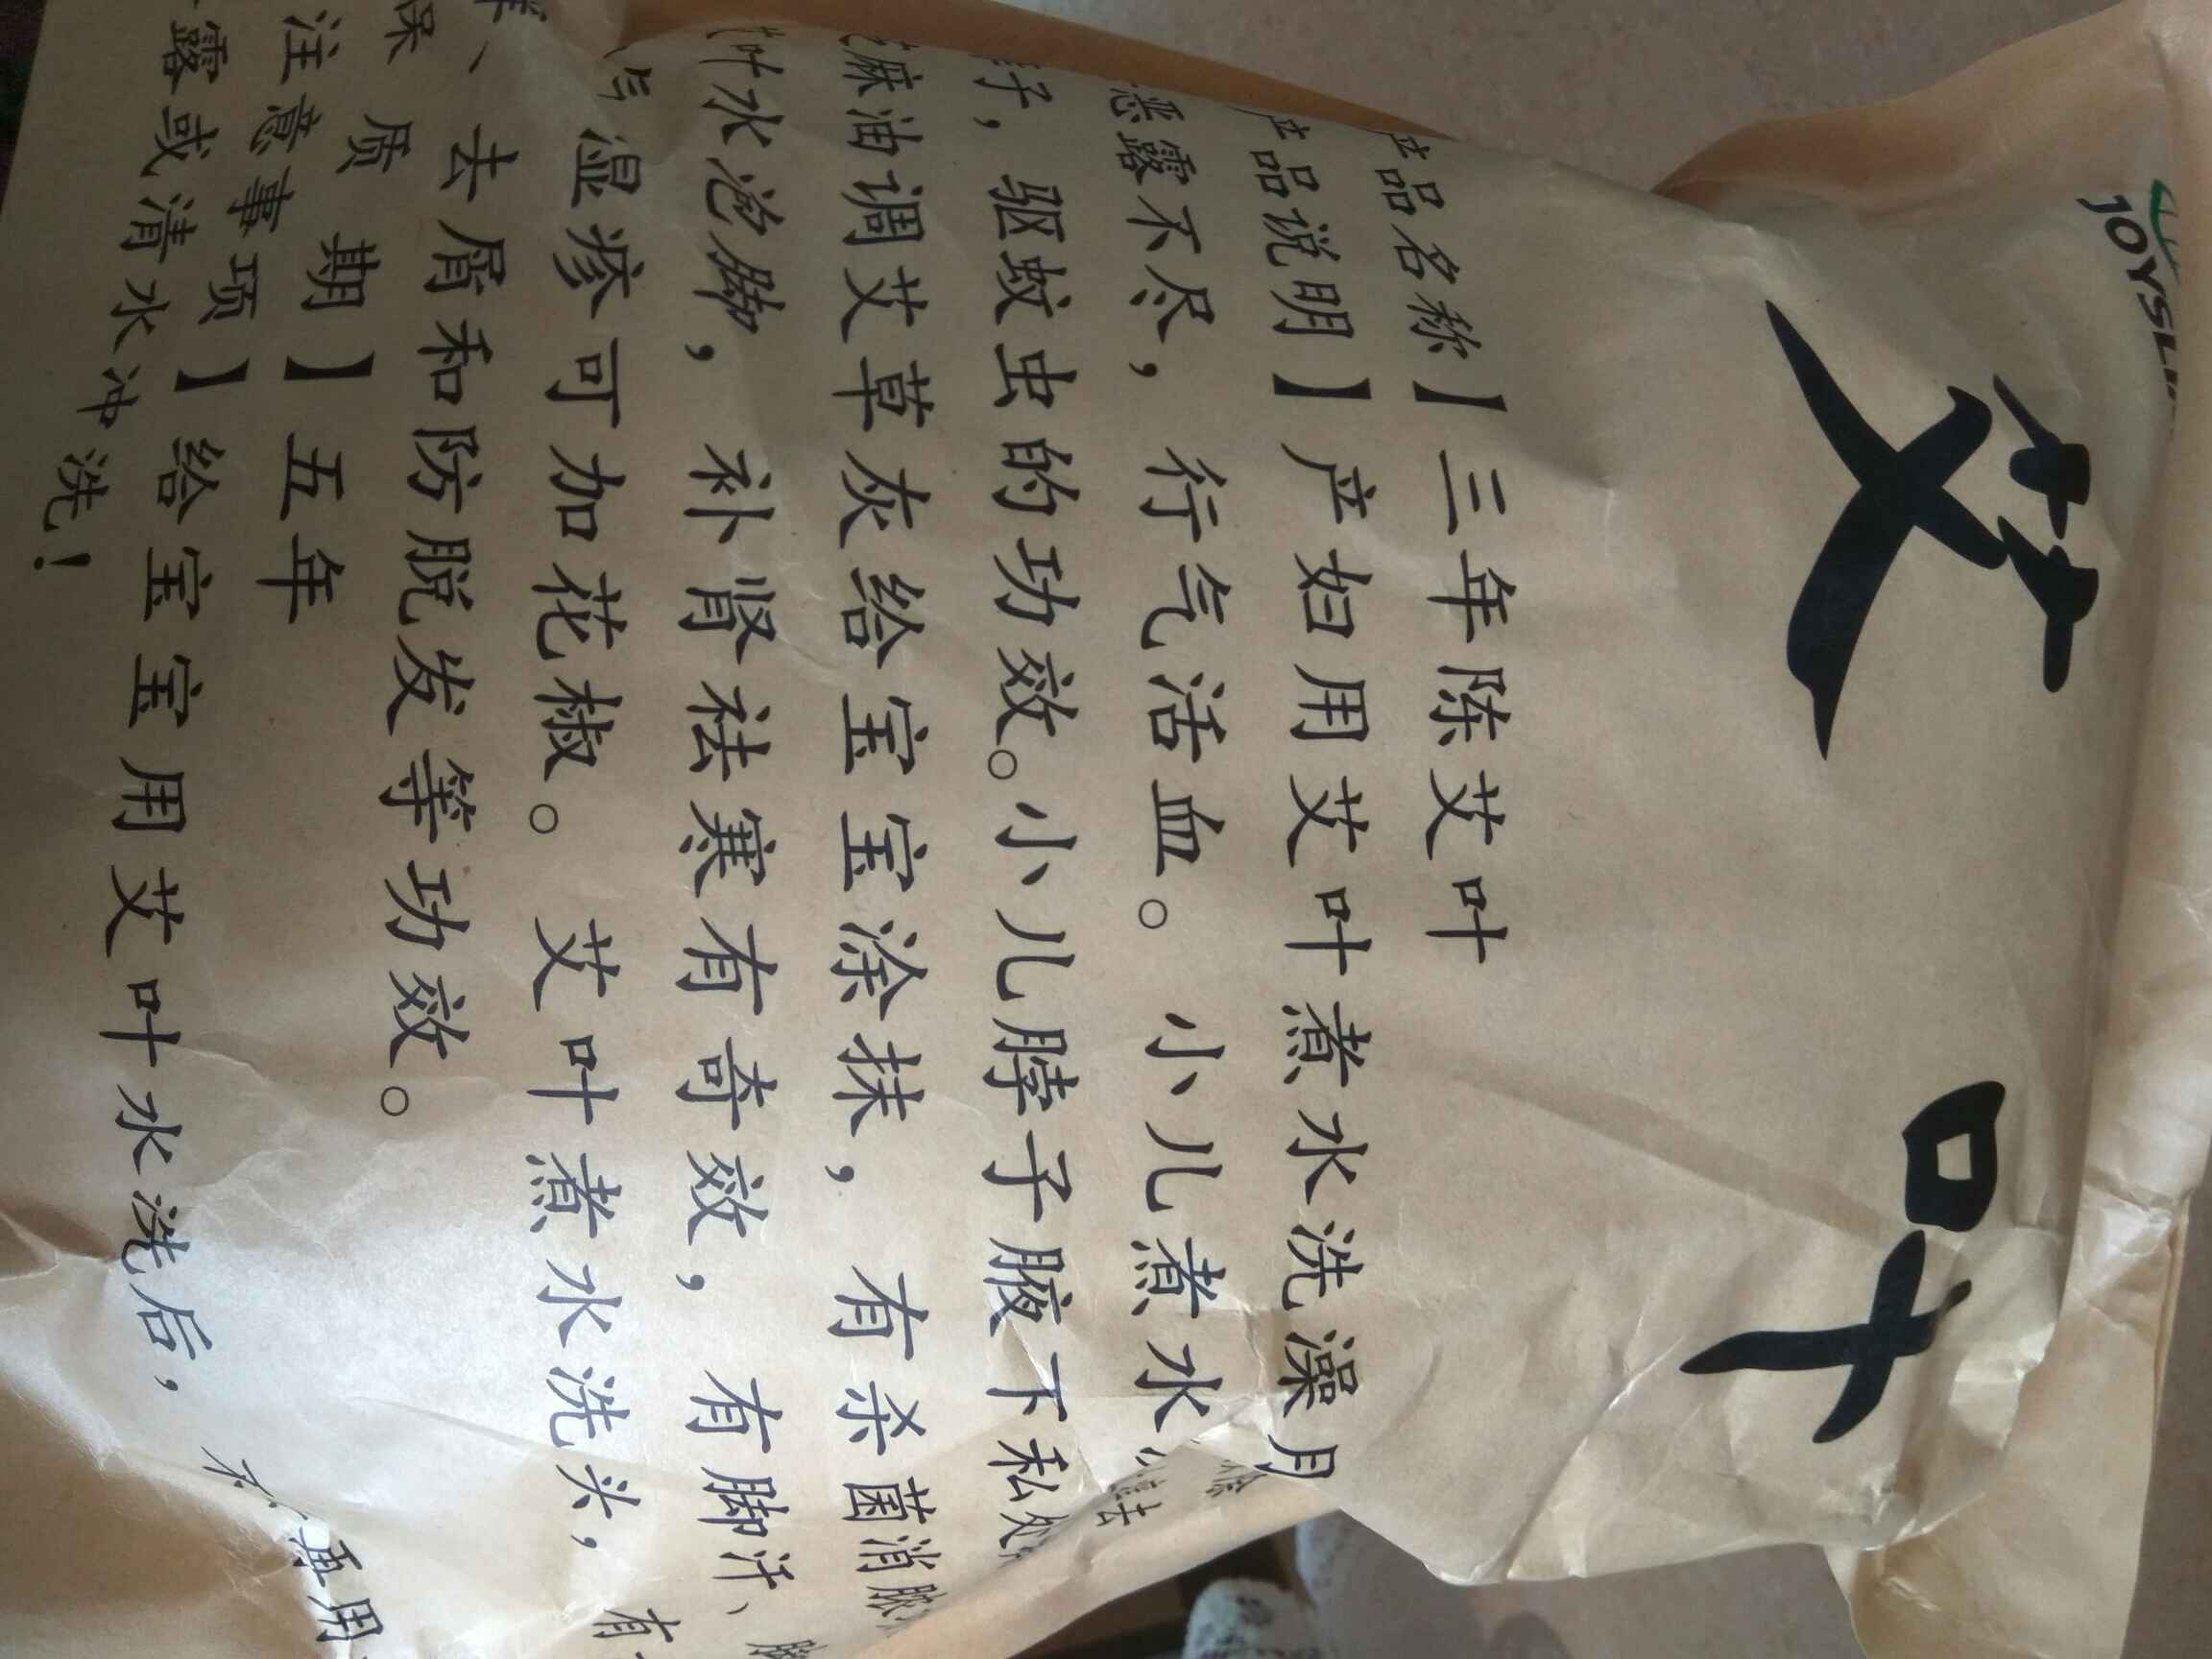 JOYSL
艾叶
产品名称】三年陈艾叶
产品说明】产妇用艾叶煮水洗澡月
恶露不尽，行气活血。小儿煮水
子，驱蚊虫的功效。小儿脖子腋下私处
麻油调艾草灰给宝宝涂抹，有杀菌消
叶水泡脚，补肾祛寒有奇效，有脚汗、
湿疹可加花椒。艾叶煮水洗头，有
、去屑和防脱发等功效。
保质期】五年
注意事项】给宝宝用艾叶水洗后，再用
露或清水冲洗！